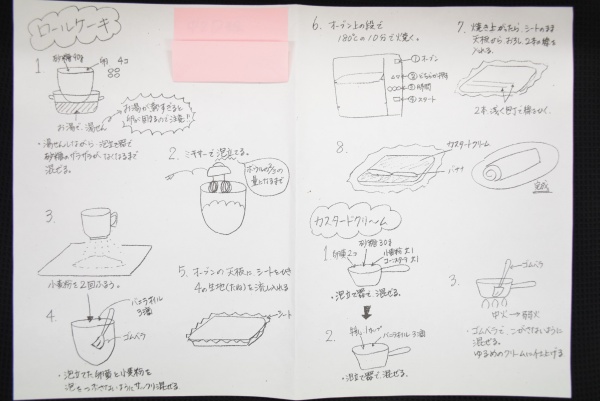 ロールケーキ
1.
卵 4コ
お湯で、湯せん
お湯が熱すぎると
卵が固まるので注意!!
・湯せんしながら、泡立て器で
砂糖のザラザラがなくなるまで
混ぜる。
2. ミキサーで泡立てる。
量になるまで
3.
小麦粉を2回ふるう。
4.
バニラオイル
3滴
ゴムベラ
・泡立てた卵黄と小麦粉を
泡をつぶさないようにサックリ混ぜる。
5. オーブンの天板にシートをひき
4の生地(たね)を流し入れる
シート
6. オーブン上の段で
180℃の10分で焼く。
① オーブン
③ 時間
④ スタート
7. 焼き上がったら、シートのまま
天板からおろし、2本の線を
入れる。
2本浅く包丁で線をひく。
8.
カスタードクリーム
バナナ
完成
カスタードクリーム
1.
卵黄2コ
砂糖30g
小麦粉 大1
コーンスターチ 大1
・泡立て器で、混ぜる。
2.
バニラオイル 3滴
・泡立て器で、混ぜる。
3.
ゴムベラ
中火→弱火
・ゴムベラで、こがさないように
混ぜる。
ゆるめのクリームに仕上げる。